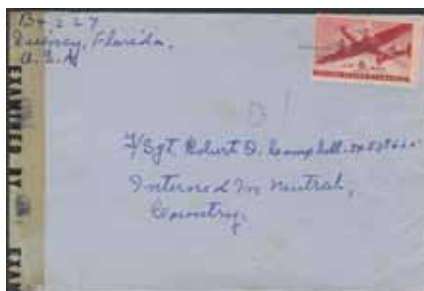 Box 227
Quincy, Florida.
U.S.A.
EXAMINED BY
EXAM
T/Sgt Robert D. Campbell
Interned In Neutral,
Country.